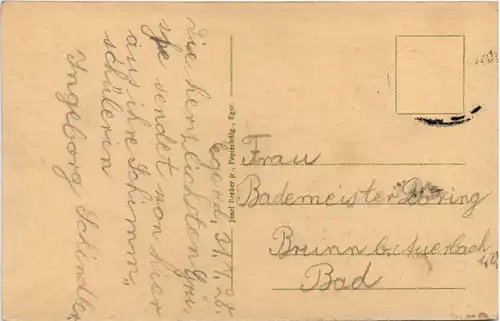 Eger d. 31.7.28.
Die herzlichsten Grü-
ße sendet von hier
aus ihre Schwimm-
schülerin
Ingeborg Schindler
Josef Becker jr., Papierhdlg., Eger.
Frau
Bademeister Döring
Brunn b. Auerbach
Bad